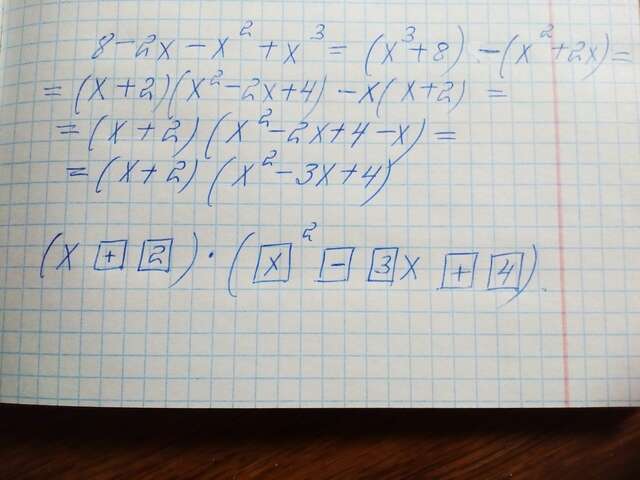 8 - 2x - x² + x³ = (x³ + 8) - (x² + 2x) =
= (x + 2)(x² - 2x + 4) - x(x + 2) =
= (x + 2)(x² - 2x + 4 - x) =
= (x + 2)(x² - 3x + 4)
(x + 2) · (x² - 3x + 4).